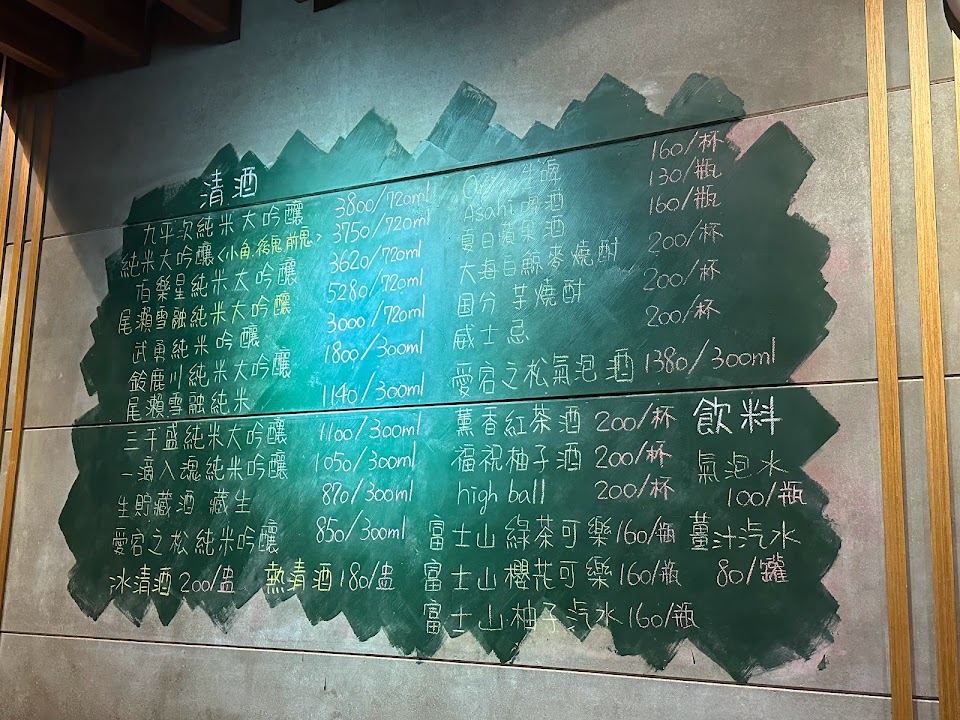 清酒
九平次純米大吟釀 3800/720ml
純米大吟釀<小角.後鬼.前鬼> 3750/720ml
伯樂星純米大吟釀 3620/720ml
尾瀨雪融純米大吟釀 5280/720ml
武勇純米吟釀 3000/720ml
鈴鹿川純米大吟釀 1800/300ml
尾瀨雪融純米 1140/300ml
三千盛純米大吟釀 1100/300ml
一滴入魂純米吟釀 1050/300ml
生貯藏酒 藏生 870/300ml
愛宕之松純米吟釀 850/300ml
冰清酒 200/盅 熱清酒 180/盅
生啤 160/杯
Asahi啤酒 130/瓶
夏日蘋果酒 160/瓶
大海白鯨麥燒酎 200/杯
国分 芋燒酎 200/杯
威士忌 200/杯
愛宕之松氣泡酒 1380/300ml
薰香紅茶酒 200/杯
福祝柚子酒 200/杯
high ball 200/杯
富士山 綠茶可樂 160/瓶
富士山 櫻花可樂 160/瓶
富士山 柚子汽水 160/瓶
飲料
氣泡水
100/瓶
薑汁汽水
80/罐